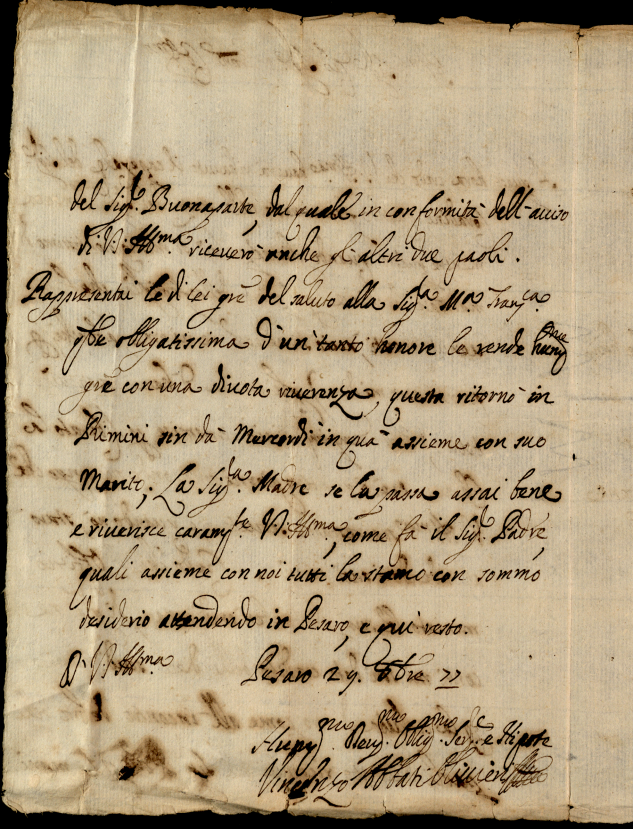 del Sig.r Buonaparte, dal quale in conformità dell'aviso
di V. Ill.ma riceverò anche gl'altri due paoli.
Rappresentai le di lei gr.e del saluto alla Sig.ra M.a Fran.ca
obbligatissima d'un tanto honore le rende
gr.e con una divota riverenza, questa ritornò in
Rimini sin da Mercordì in quà assieme con suo
Marito; La Sig.ra Madre se la passa assai bene
e riverisce caram.te V. Ill.ma, come fà il Sig.r Padre,
quali assieme con noi tutti la stamo con sommo
desiderio attendendo in Pesaro, e quì resto.
D V. Ill.ma Pesaro 29. 8bre 77
Obblig.mo Ser.e e Nipote
Vincenzo Abbati Olivieri